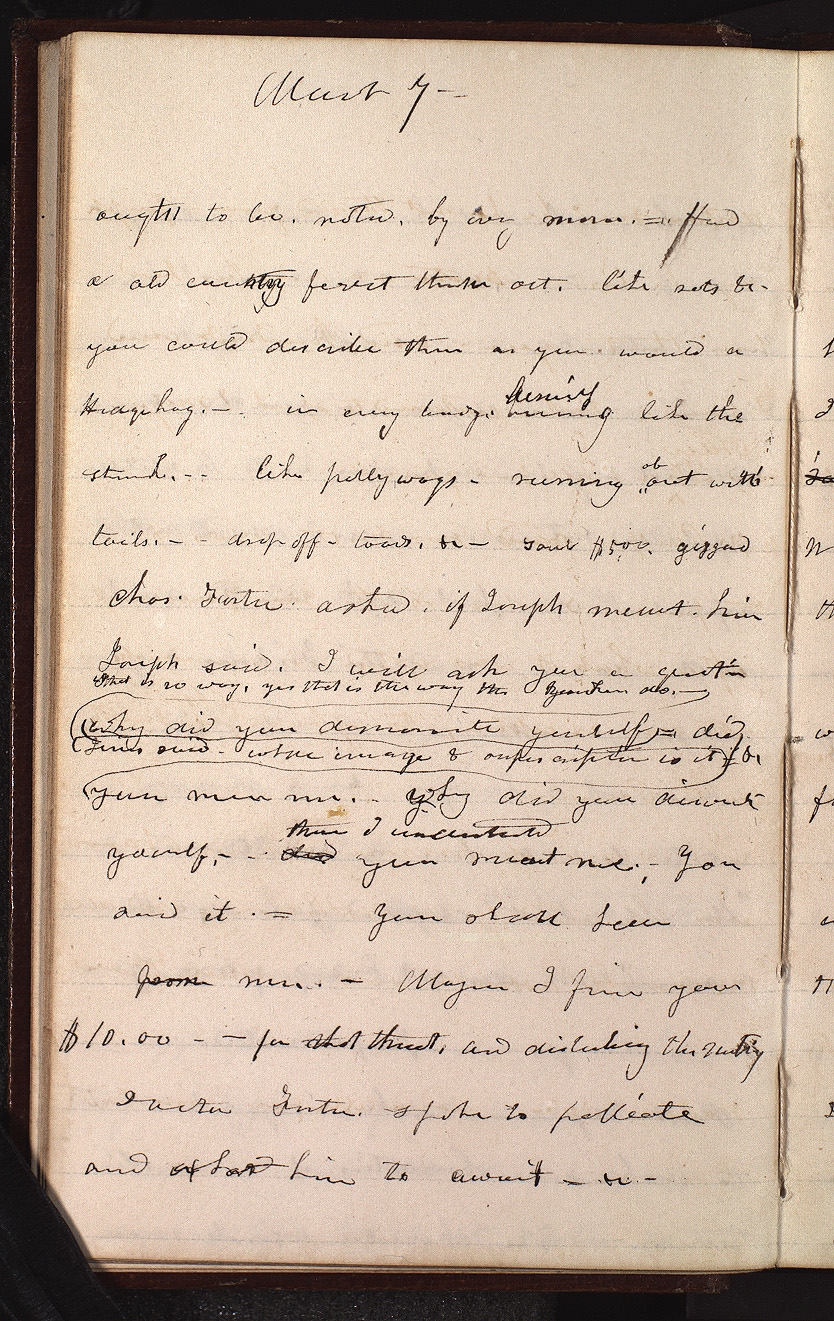 March 7 —
ought to be. noted. by every man. = And
a old country ferret them out. like rats &c -
you could describe them as you. would a
Hedgehog. — in every hedge. 
like the
skunk. - - like pollywogs - running about with
tails. — - drop off - toads. &c — your $500. 
chos. Foster. asked. if Joseph meant. him
Joseph said. I will ask you a questn
that is no way, yes that is the way the Yankees do. —
(why did you demonite yourself = did
Jesus said - whose image & superscription is it &c
you mean me. - why did you 
yourself, - - did then I understood you meant me. - , You
said it. = You shall hear
from me. — Mayor I fine you
$10.00 - — for that threat, and disturbing the meeting
Doctor Foster. spoke to palleate
and asked him to await — &c —